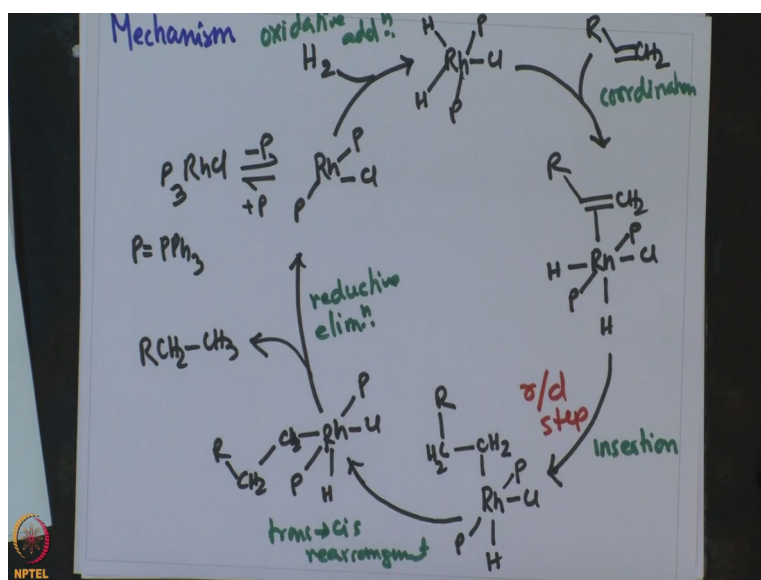 Mechanism
oxidative
addⁿ:
H₂
H
P
Rh-Cl
H
P
R
CH₂
coordination
P₃RhCl
-P
+P
P
Rh
Cl
P
P=PPh₃
R
CH₂
P
H-Rh-Cl
P
H
reductive
elimⁿ:
RCH₂-CH₃
r/d
step
insertion
R
H₂C-CH₂
P
Rh-Cl
P
H
P
CH₂-Rh-Cl
R
CH₂
P
H
trans→cis
rearrangement
NPTEL